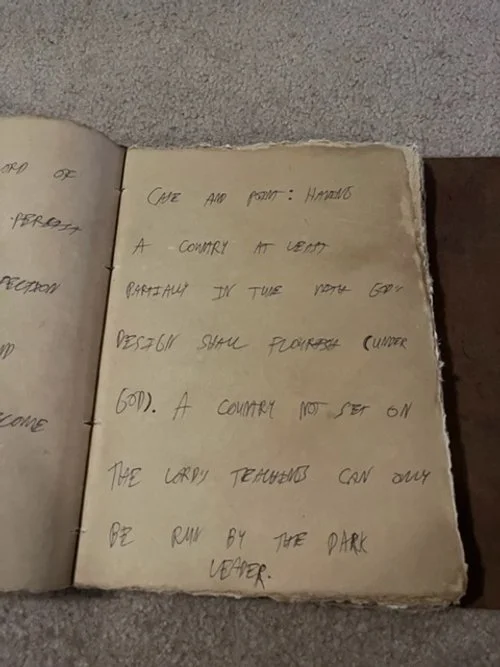 ORD OF
PERFECT
PECTION
ND
COME
CASE AND POINT: HAVING
A COUNTRY AT LEAST
PARTIALLY IN TUNE WITH GOD'S
DESIGN SHALL FLOURISH (UNDER
GOD). A COUNTRY NOT SET ON
THE LORDS TEACHINGS CAN ONLY
BE RUN BY THE DARK
LEADER.